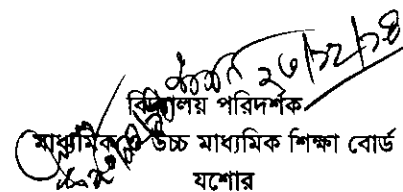 ২৩/১২/১৪
বিদ্যালয় পরিদর্শক
মাধ্যমিক ও উচ্চ মাধ্যমিক শিক্ষা বোর্ড
যশোর